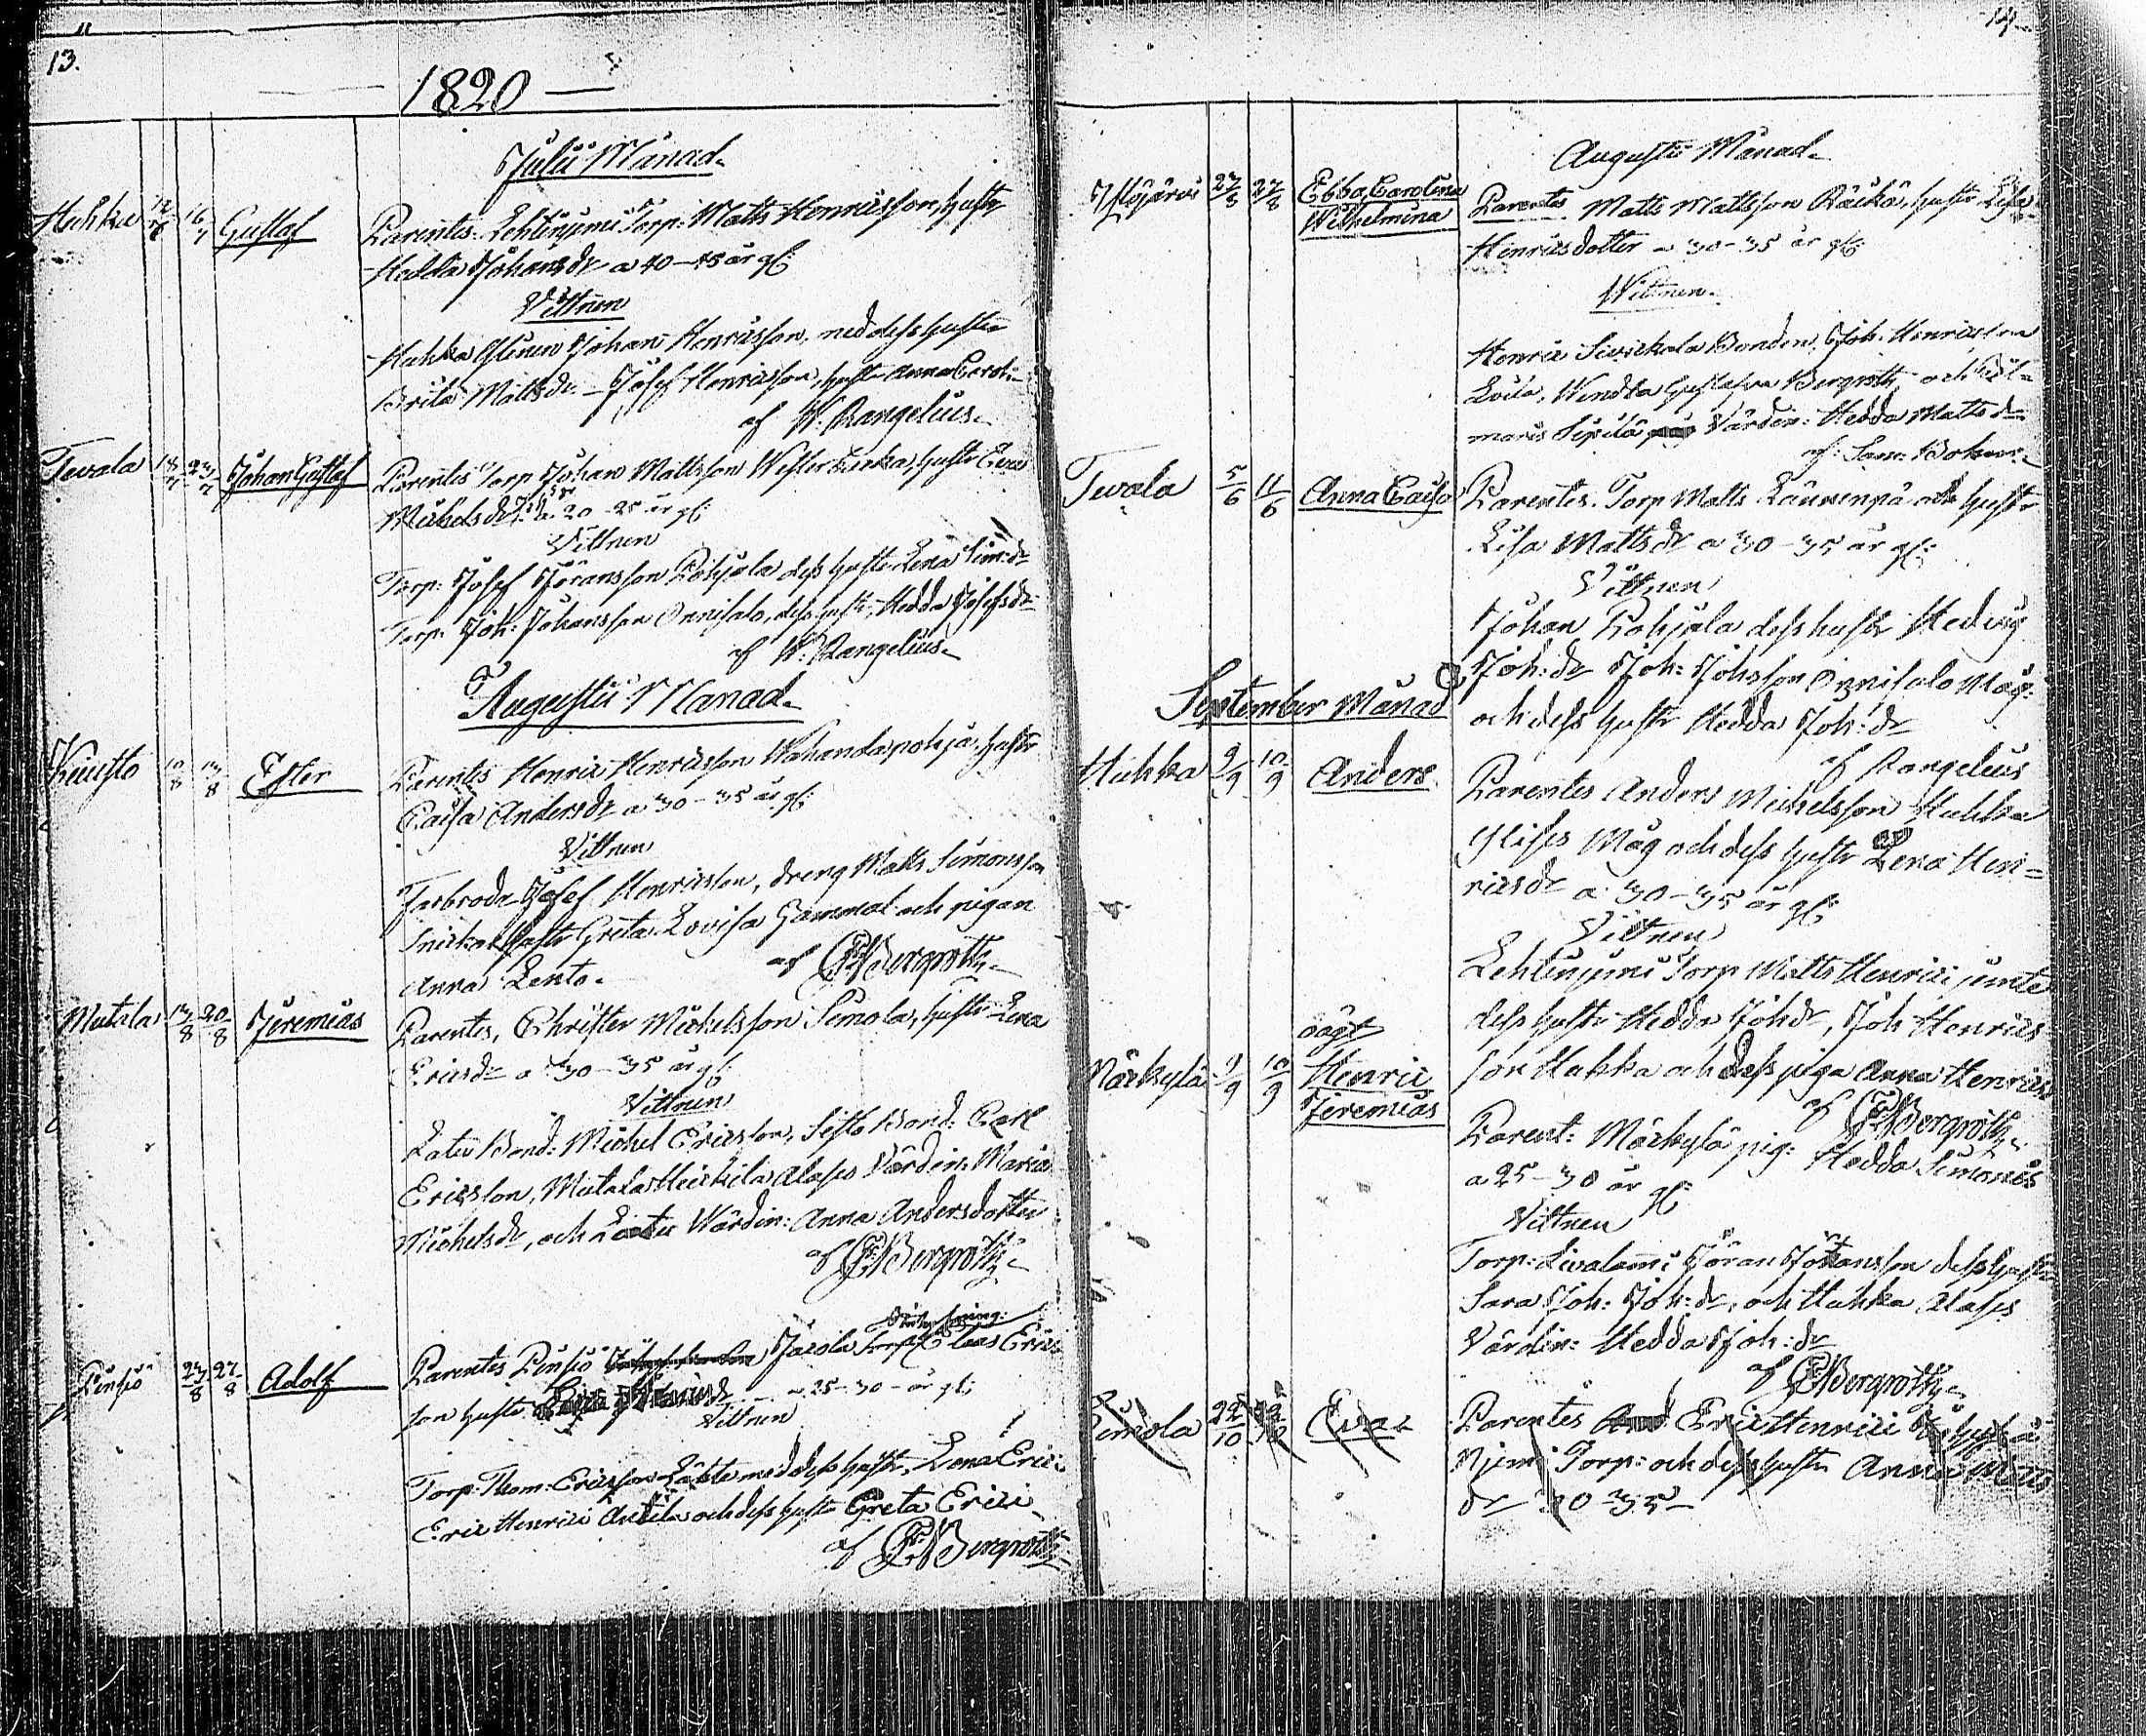 13.
1820
Julii Månad.
Huhka 12/7 16/7 Gustaf Parentes. Lehtinjemi Torp: Matts Henricsson, hustr
Hedda Johansdr a 40-45 år gl:
Vittnen
Huhka Johan Henricsson, med dess hustru
Brita Mattsdr. Josef Henricsson, hustr Anna
af W. Rangelius.
Tevala 18/7 23/7 Johan Gustaf Parentes Torp Johan Mattsson hustr Eva
Michelsdr: a 20-25 år gl:
Vittnen
Torp: Josef Jöransson Pohjola dess hustr Lena Sim:dr
Torp: Joh: Johansson Onnisalo, dess hustr, Hedda Josefsdr
af W. Rangelius.
Augustii Månad.
Kuusto 10/8 13/8 Ester Parentes Henric Henricsson Wahandapohja, hustr
Caisa Andersdr a 30-35 år gl:
Vittnen
Farbrodr Josef Henricsson, dreng Matts Simonsson
hustr Greta Lovisa Gammal och pigan
Anna Lento.
af Bergroth.
Mutala 13/8 20/8 Jeremias Parentes, Christer Michelsson Simola, hustr Lena
Ericsdr a 30-35 år gl:
Vittnen
Latu Bond: Michel Ericsson, Sisto Bond: Carl
Ericsson, Mutala Heickilä Värdin: Maria
Michelsdr, och Latu Wärdin: Anna Andersdotter
af Bergroth.
Pinsiö 23/8 27/8 Adolf Parentes Pinsiö Jacola Torp Claas Erics
son hustr a 25-30 år gl:
Vittnen
Torp: Thom: Ericsson med dess hustr, Lena Erici
Eric Henrici Anttila och dess hustr Greta Erici
af Bergroth
14.
Augustii Månad.
Ylöjärvi 23/8 27/8 Ebba Carolina
Wilhelmina
Parentes. Matts Mattsson Räickä, hustr Lisa
Henricsdotter a 30-35 år gl:
Wittnen.
Henric Sivickala Bonden, Joh: Henricsson
Wendla Gustafva Bergroth, och
Sipilä Värdin: Hedda Mattsdr
af: Sam:
Tevala 5/6 11/6 Anna Caisa Parentes. Torp Matts och hustr
Lisa Mattsdr a 30-35 år gl:
Vittnen
Johan Pohjala dess hustr Hedvig
Joh:dr Joh: Johsson Onnisalo Måg:
och dess hustr Hedda Joh:dr
af Rangelius
September Månad
Huhka 9/9 10/9 Anders Parentes Anders Michelsson Huhka
Måg och dess hustr Lena Hen=
ricsdr a 30-35 år gl:
Vittnen
Lehtinjemi Torp Matts Henrici jemte
dess hustr Hedda Johdr, Joh Henrics
son Huhka och dess piga Anna Henrics
af Bergroth
oägt
Märkylä 9/9 10/9 Henric
Jeremias
Parent: Märkylä pig: Hedda Simons
a 25-30 år gl:
Vittnen
Torp: Livalammi Jöran Johansson dess hustr
Sara Joh: Joh:dr, och Huhka
Värdin: Hedda Joh:dr
af Bergroth
Simola 22/10 Eva Parentes Eric Henrici
Njemi Torp: och dess hustr Anna Matts
dr 30-35